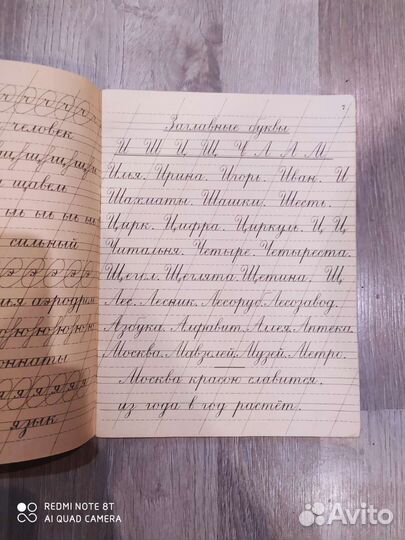 человек
щавель
ы ы ы ы
сильный
э э э э
аэродром
ю ю ю ю
комнаты
я я я я я я
язык
7
Заглавные буквы
И Ш Ц Щ Ч Л А М
Илья. Ирина. Игорь. Иван. И
Шахматы. Шашки. Шесть.
Цирк. Цифра. Циркуль. Ц Ц
Читальня. Четыре. Четыреста.
Щегол. Щеглята. Щетина. Щ
Лес. Лесник. Лесоруб. Лесозавод.
Азбука. Алфавит. Аллея. Аптека.
Москва. Мавзолей. Музей. Метро.
Москва красою славится,
из года в год растёт.
REDMI NOTE 8T
AI QUAD CAMERA
Avito